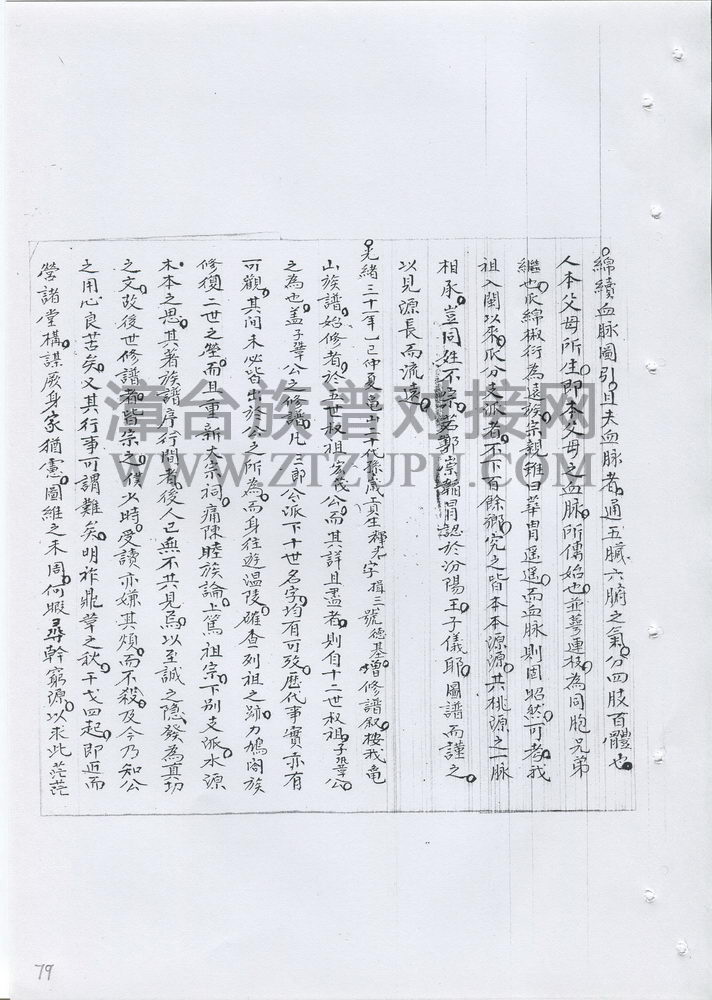 綿續血脉圖引。且夫血脉者。通五臟六腑之氣。分四肢百體也。
人本父母所生。即本父母之血脉。所傳始也。並萼連枝。為同胞兄弟
繼也。瓜綿椒衍。為遠族宗親。雖曰華胄遥遥。而血脉則固昭然可考。我
祖入閩以來。瓜分支派者。不下百餘鄉。究之皆本本源源。共桃源之一脉
相承。豈同姓不宗。若郭崇韜冒認於汾陽王子儀耶。圖譜而謹之。
以見源長而流遠。
光緒三十一年乙巳仲夏。龜山二十代孫歲貢生禪光字揖三號德基增修譜敘。按我龜
山族譜。始修者。於五世叔祖宏義公。而其詳且盡者。則自十二世叔祖子犖公
之為也。蓋子犖公之修譜。凡三郎公派下十世名字。均有可攷。歷代事實。亦有
可觀。其间未必皆出於公之所為。而身往遊溫陵。確查列祖之跡。力鳩闔族
修復二世之塋。而且重新大宗祠。痛陳睦族論。上篤祖宗。下別支派。水源
木本之思。其著族譜序行間者。後人已無不共見焉。以至誠之隐。發為真切
之文。攷後世修譜者。皆宗之。僕少時受讀。亦嫌其煩。而不殺。及今乃知公
之用心良苦矣。又其行事可謂難矣。明祚鼎革之秋。干戈四起。即近而
營諸堂構。謀厥身家。猶慮圖維之未周。何暇尋幹窮源。以求此茫茫
漳台族谱对接网
WWW.ZTZUPU.COM
79